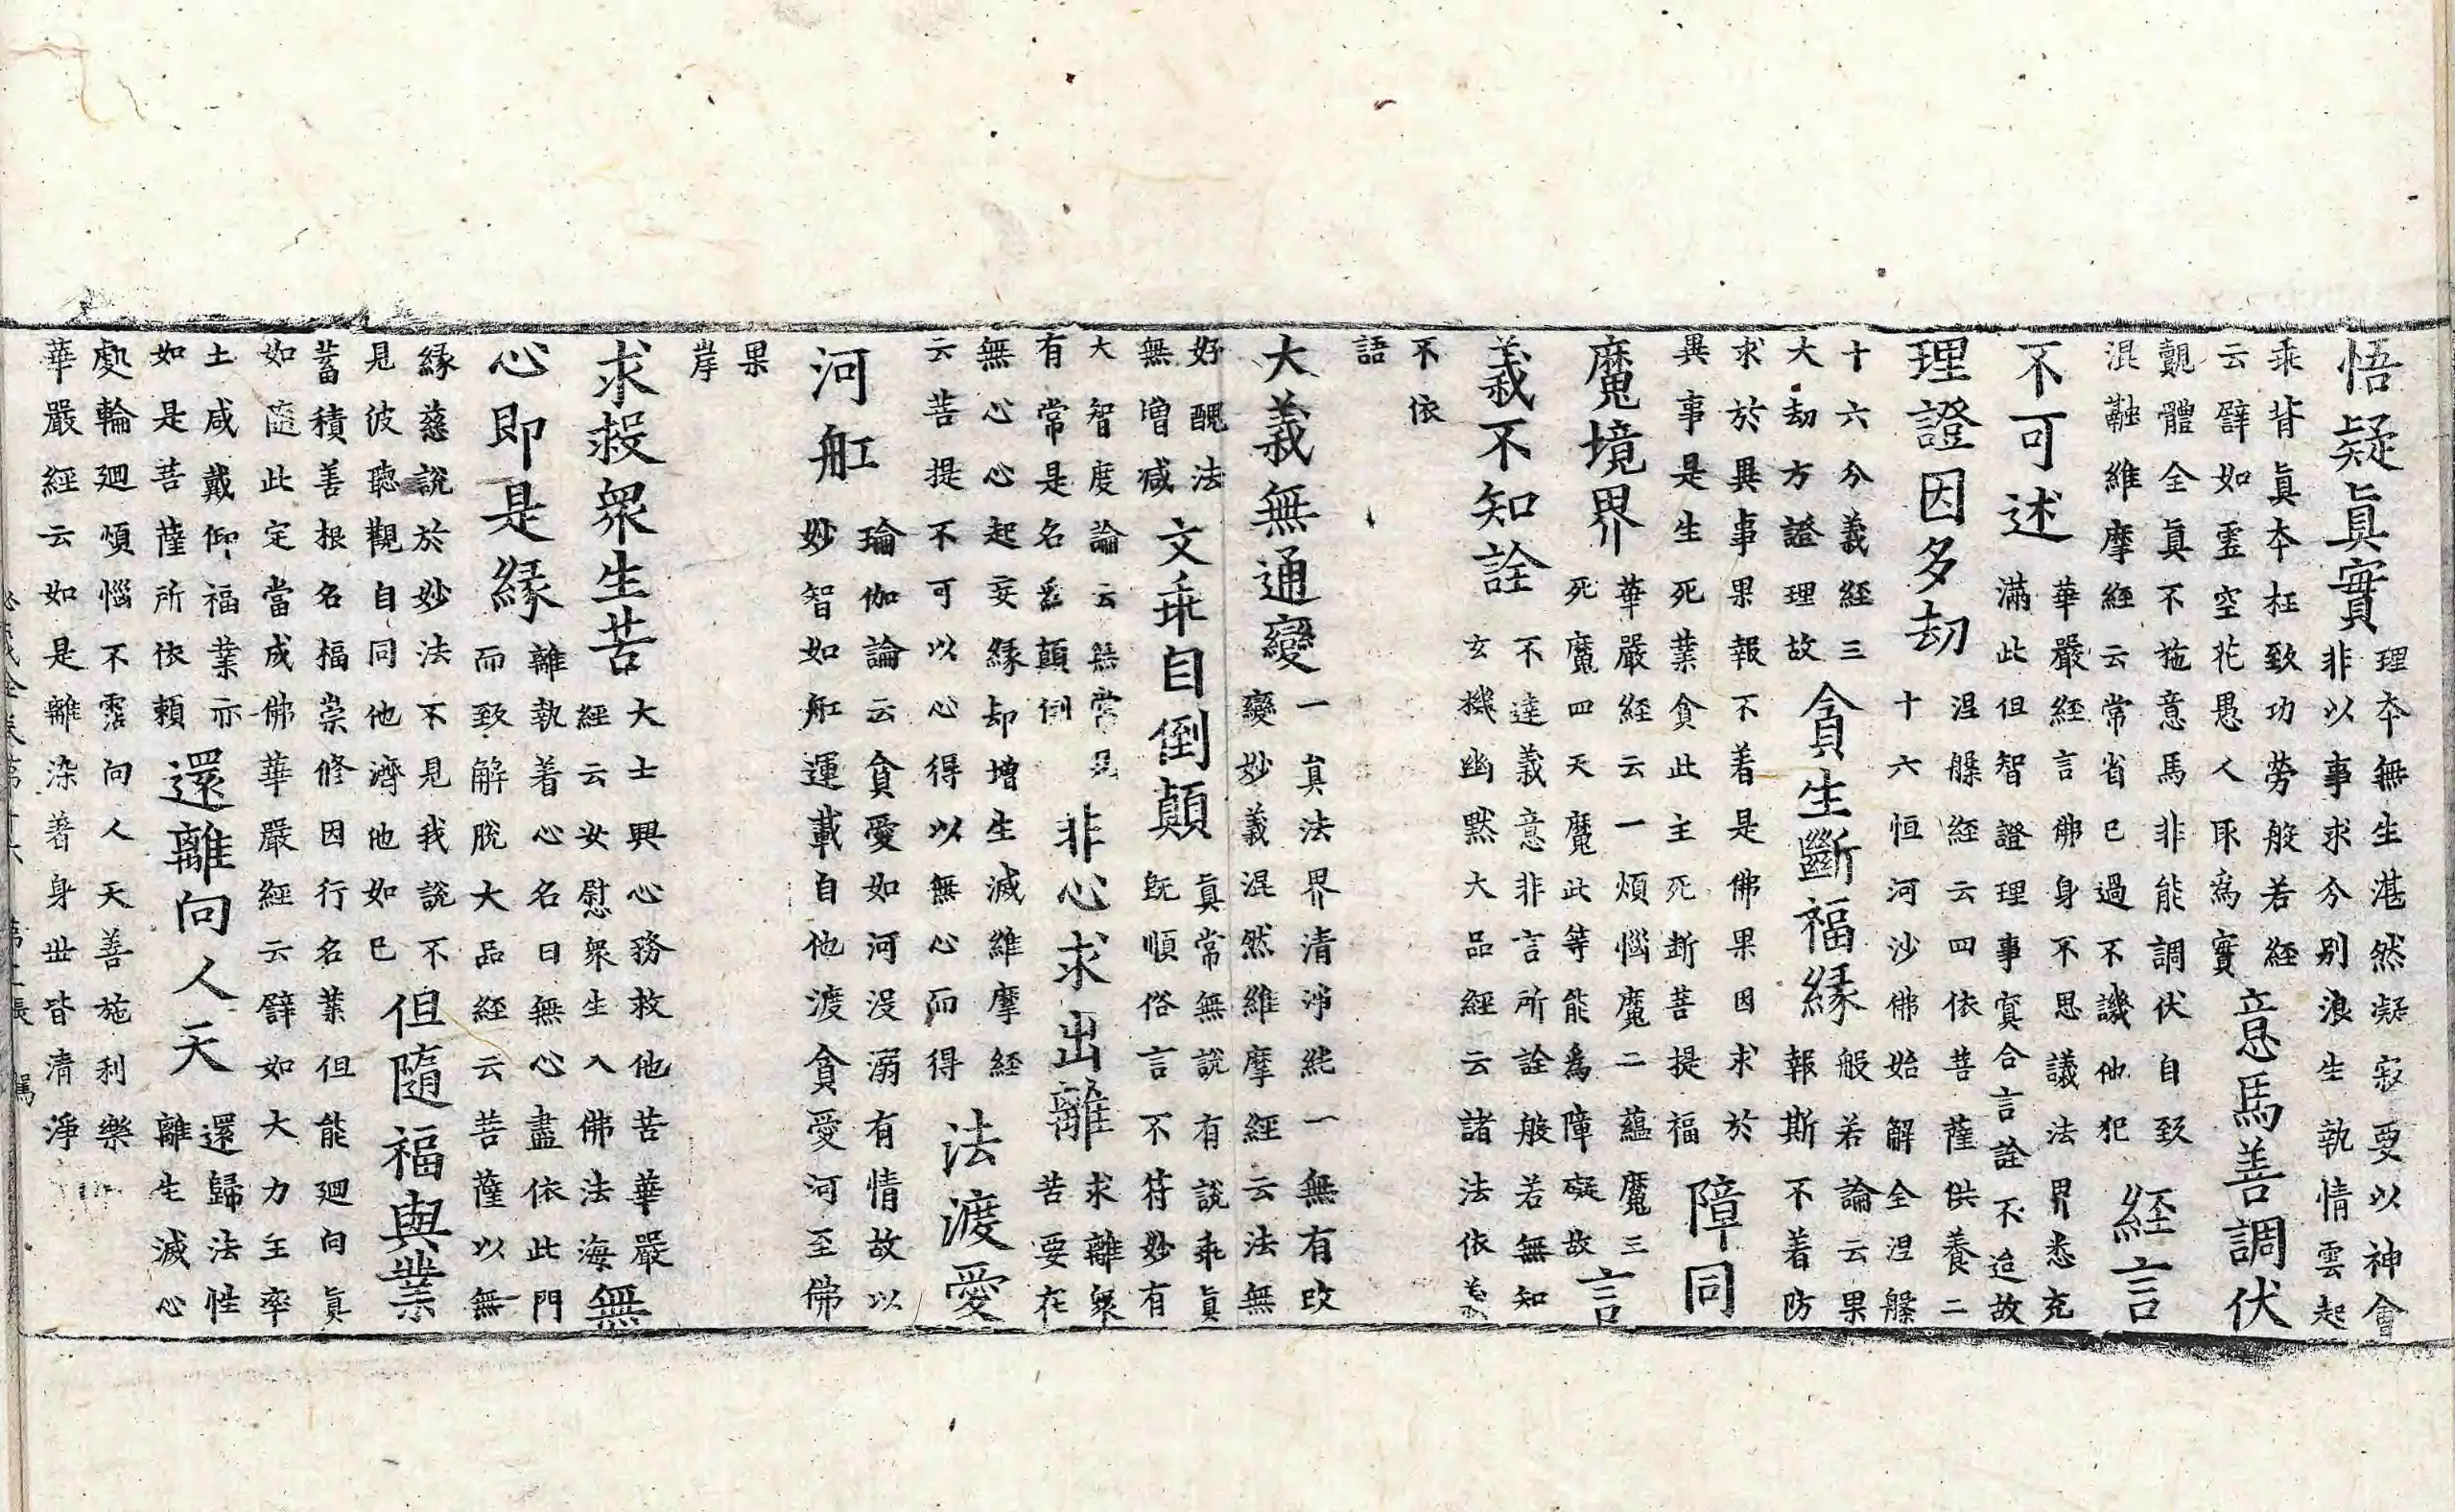 悟疑眞實
理本無生湛然凝寂要以神會
非以事求今别浪生執情雲起
乖背眞本枉致功勞般若經
云譬如虛空花愚人取爲實
意馬善調伏
覿體全眞不施意馬非能調伏自致
混融維摩經云常省己過不譏他犯
経言
不可述
華嚴經言佛身不思議法界悉充
滿此但智證理事冥合言詮不迨故
理證因多劫
涅槃經云四依菩薩供養二
十六恒河沙佛始解全涅槃
十六分義経三
大劫方證理故
貪生斷福緣
般若論云果
報斯不着防
求於異事果報不着是佛果因求於
異事是生死業貪此主死斷菩提福
障同
魔境界
華嚴經云一煩惱魔二蘊魔三
死魔四天魔此等能爲障礙故
言
義不知詮
不達義意非言所詮般若無知
玄機幽黙大品經云諸法依義
不依
語
大義無通變
一眞法界清淨純一無有改
變妙義混然維摩經云法無
好醜法
無增減
文乖自倒顛
眞常無説有説乖眞
既順俗言不符妙有
大智度論云無常見
有常是名爲顛倒
非心求出離
求離衆
苦要在
無心心起妄緣却增生滅維摩経
云菩提不可以心得以無心而得
法渡愛
河舡
瑜伽論云貪愛如河没溺有情故以
妙智如舡運載自他渡貪愛河至佛
果
岸
求救衆生苦
大士興心務救他苦華嚴
經云安慰衆生入佛法海
無
心即是緣
離執着心名曰無心盡依此門
而致解脫大品經云菩薩以無
緣慈說於妙法不見我說不
見彼聽觀自同他濟他如已
但隨福與業
蓄積善根名福崇修因行名業但能廻向眞
如隨此定當成佛華嚴經云譬如大力王率
土咸戴仰福業亦
如是菩薩所依頼
還離向人天
還歸法性
離生滅心
處輪廻煩惱不霑向人天善施利樂
華嚴經云如是離染著身世皆清淨